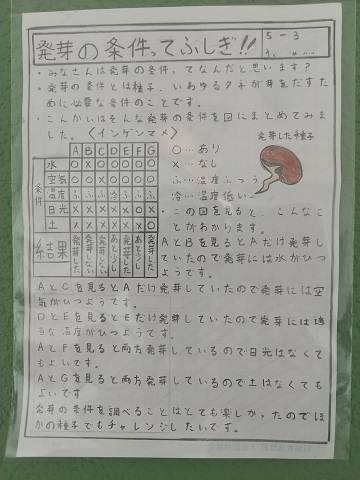 発芽の条件ってふしぎ!!
5-3
・みなさんは発芽の条件ってなんだと思います?
・発芽の条件とは種子、いわゆるタネが芽をだすた
めに必要な条件のことです。
・こんかいはそんな発芽の条件を図にまとめてみま
した。〈インゲンマメ〉
発芽した種子
A B C D E F G
条件
水 ○ × ○ ○ ○ ○ ○
空気 ○ ○ × ○ ○ ○ ○
温度 ふ ふ ふ 冷 ふ ふ ふ
日光 × × × × × ○ ×
土 × × × × × × ○
結果 発芽した 発芽しない 発芽しない 発芽した 発芽した
○…あり
×…なし
ふ…温度ふつう
冷…温度低い
・この図を見ると、こんなこ
とがわかります。
AとBを見るとAだけ発芽し
ていたので発芽には水がひつ
ようです。
AとCを見るとAだけ発芽していたので発芽には空
気がひつようです。
DとEを見るとEだけ発芽していたので発芽には適
当な温度がひつようです。
AとFを見ると両方発芽しているので日光はなくて
もよいです。
AとGを見ると両方発芽しているので土はなくても
よいです
発芽の条件を調べることはとても楽しかったのでほ
かの種子でもチャレンジしたいです。